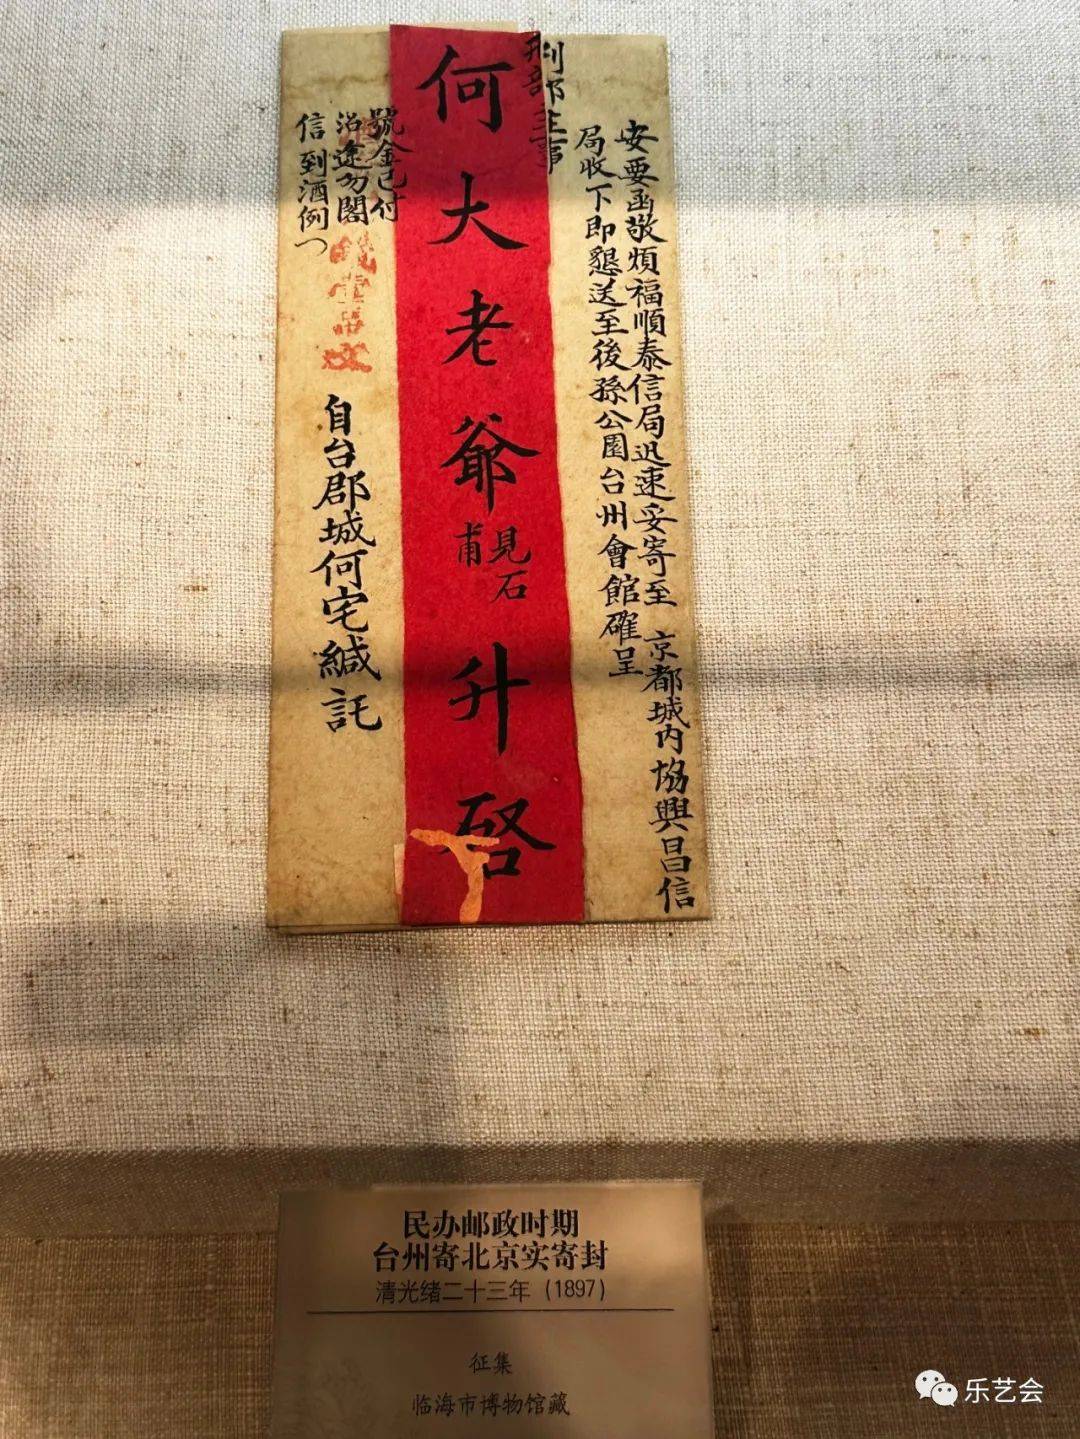 安要函敬煩福順泰信局迅速妥寄至 京都城内協興昌信
局收下即懇送至後孫公園台州會館確呈
刑部主事
何大老爺見石甫升啓
號金已付
沿途勿閣
信到酒例
自台郡城何宅緘託
民办邮政时期
台州寄北京实寄封
清光绪二十三年（1897）
征集
临海市博物馆藏
乐艺会